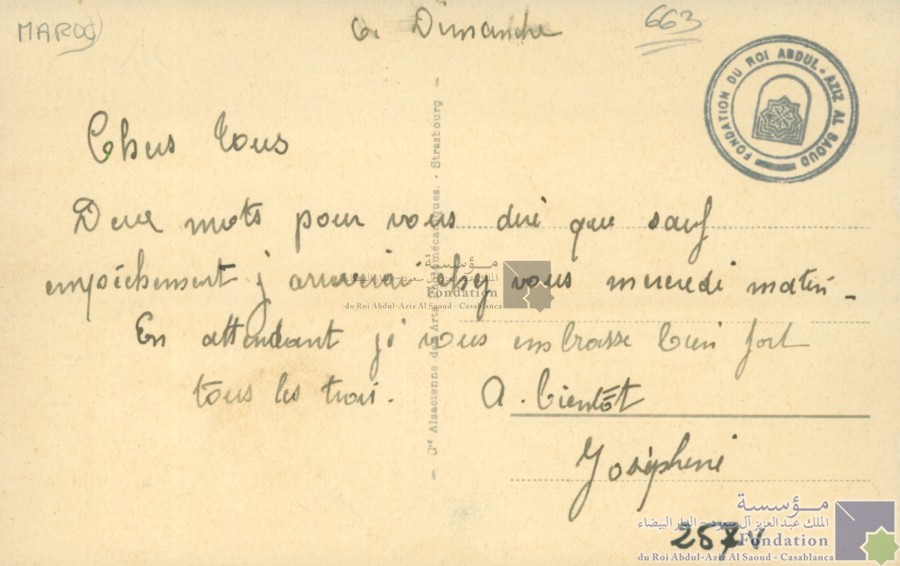 MAROC
Ce Dimanche
663
FONDATION DU ROI ABDUL-AZIZ AL SAOUD
Chers Tous
Deux mots pour vous dire que sauf
empêchement j'arriverai chez vous mercredi matin -
En attendant je vous embrasse bien fort
tous les trois. A bientôt
Joséphine
- Cie Alsacienne des Arts Photomécaniques. - Strasbourg -
مؤسسة
الملك عبد العزيز آل سعود - الدار البيضاء
Fondation
du Roi Abdul-Aziz Al Saoud - Casablanca
مؤسسة
الملك عبد العزيز آل سعود - الدار البيضاء
Fondation
du Roi Abdul-Aziz Al Saoud - Casablanca